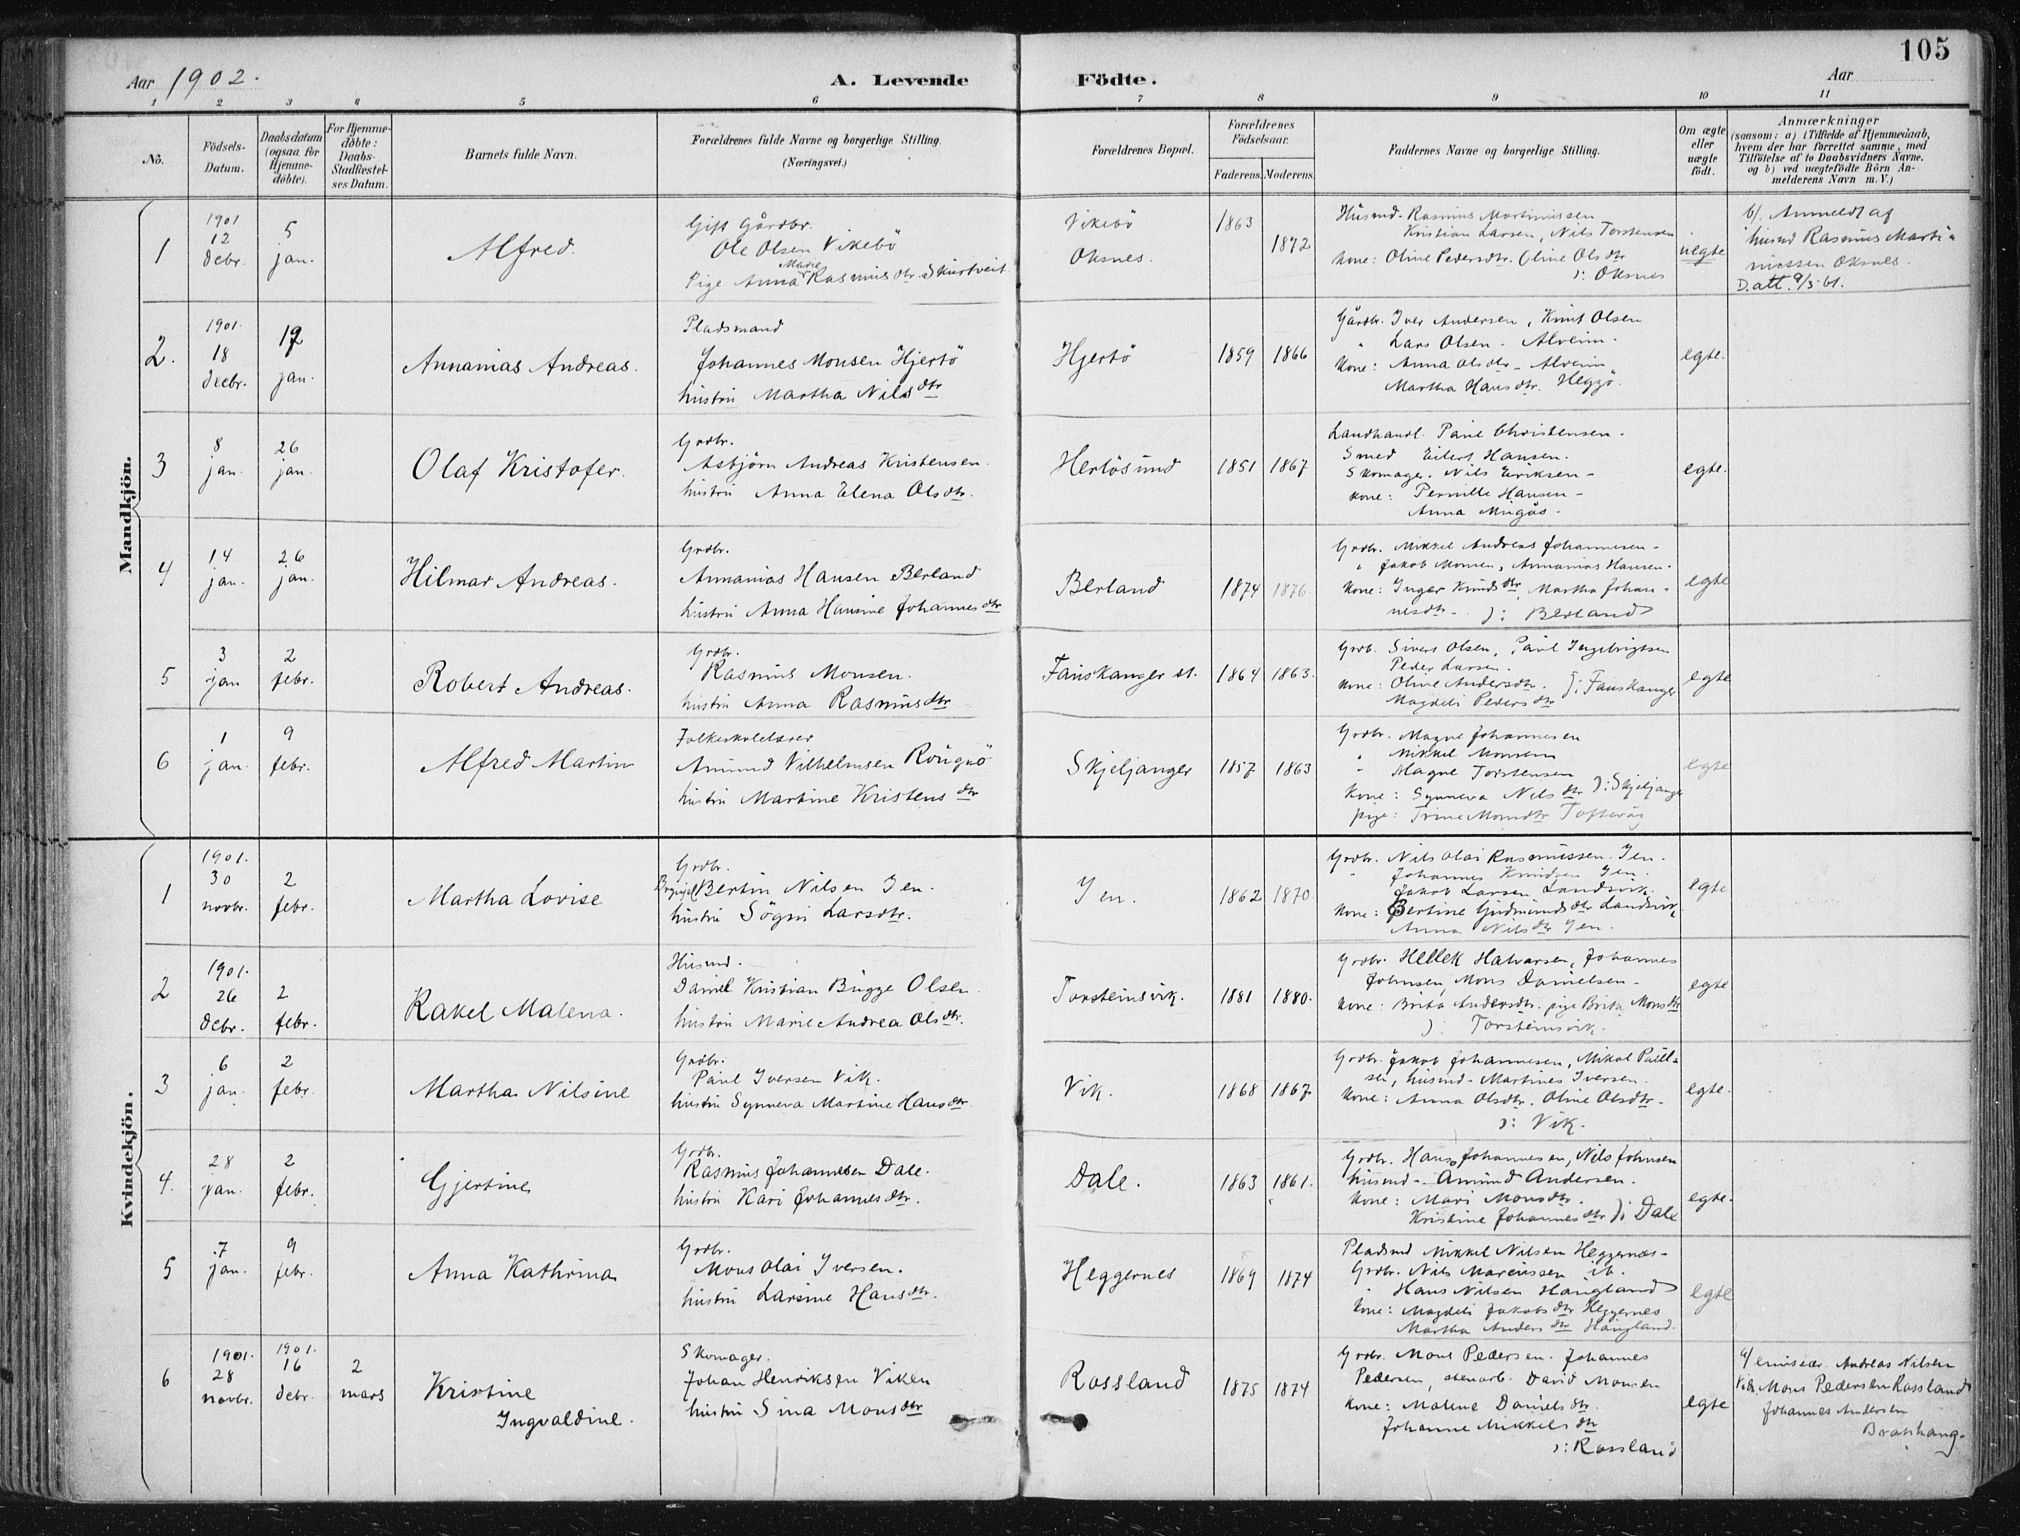 105
Aar 1902.
A. Levende Födte.
Aar
1 2 3 4 5 6 7 8 9 10 11
No.
Födsels-
Datum.
Daabsdatum
(ogsaa for
Hjemme-
döbte).
For Hjemme-
döbte:
Daabs-
Stadfæstel-
ses Datum.
Barnets fulde Navn.
Forældrenes fulde Navne og borgerlige Stilling.
(Næringsvei.)
Forældrenes Bopæl.
Forældrenes
Födselsaar.
Faderens.
Moderens.
Faddernes Navne og borgerlige Stilling.
Om ægte
eller
uægte
födt.
Anmærkninger
(saasom: a) i Tilfælde af Hjemmedaab,
hvem der har forrettet samme, med
Tilföielse af to Daabsvidners Navne.
og b) ved uægtefödte Börn An-
melderens Navn m. V.)
Mandkjön.
1
1901
12
debr.
5
jan.
Alfred.
Gift Gårdbr.
Ole Olsen Vikebö
Marie
Pige Anna Rasmusdtr Skurtveit
Vikebö
Oksnes.
1863
1872
Husmd. Rasmus Martinussen
Kristian Larsen, Nils Torstensen
kone: Oline Pedersdtr. Oline Olsdtr
): Oksnes
uegte
b/ Anmeldt af
husmd Rasmus Marti-
nussen Oksnes.
D.att. 9/5-61.
2.
1901.
18
decbr.
19
jan.
Annanias Andreas.
Pladsmand
Johannes Monsen Hjertö
hustru Martha Nilsdtr
Hjertö
1859
1866
Gårdbr. Iver Andersen, Knut Olsen
" Lars Olsen - Alveim.
kone: Anna Olsdtr - Alveim
Martha Hansdtr. Heggö.
egte.
3
8
jan.
26
jan.
Olaf Kristofer.
Grdbr.
Asbjörn Andreas Kristensen.
hustru Anna Elena Olsdtr.
Herlösund
1851
1867
Landhandl. Paul Christensen.
Smed Eilert Hansen.
Skomager. Nils Eriksen -
kone: Pernille Hansen -
Anna Migås.
egte.
4
14
jan.
26
jan.
Hilmar Andreas.
Grdbr.
Annanias Hansen Berland
hustru Anna Hansine Johannesdtr
Berland
1874
1876
Grdbr. Mikkel Andreas Johannesen -
" Jakob Monsen, Annanias Hansen.
kone: Inger Knudsdtr, Martha Johan-
nesdtr - ): Berland
egte
5
3
jan
2
febr.
Robert Andreas.
Grdbr.
Rasmus Monsen.
hustru Anna Rasmusdtr
Fauskanger st.
1864
1863.
Grdb. Sivert Olsen, Paul Ingebrigtsen
Peder Larsen.
kone: Oline Andersdtr. ): Fauskanger
Magdeli Pedersdtr
egte
6
1
jan.
9
febr.
Alfred Martin
Folkeskolelærer
Amund Vilhelmsen Rougnö
hustru Martine Kristensdtr
Skjeljanger
1857
1863
Grdbr. Magne Johannesen
" Mikkel Monsen
" Magne Torstensen
kone: Synneva Nilsdtr ): Skjeljanger
pige: Trine Monsdtr Toftevåg
egte
Kvindekjön.
1
1901.
30
novbr.
2
febr.
Martha Lovise
Grdbr.
Bertin Nilsen Jen.
hustru Sögni Larsdtr.
Jen.
1862
1870
Grdbr. Nils Olai Rasmussen. Jen.
" Johannes Knudsen Jen.
Jakob Larsen Landsvik.
kone: Bertine Gudmundsdtr Landsvik
Anna Nilsdtr Jen.
egte
2
1901.
26
debr.
2
febr.
Rakel Malena.
Husmd.
Daniel Kristian Bugge Olsen.
hustru Marie Andrea Olsdtr.
Torsteinsvik.
1881
1880.
Grdbr. Hellek Halvarsen, Johannes
Johnsen, Mons Danielsen -
kone: Brita Andersdtr. pige Brita Monsdtr
): Torsteinsvik.
egte
3
6
jan.
2
febr.
Martha Nilsine
Grdbr.
Paul Iversen Vik.
hustru Synneva Martine Hansdtr.
Vik.
1868
1867
Grdbr. Jakob Johannesen, Mikal Paul-
sen, husmd - Martines Iversen.
kone: Anna Olsdtr. Oline Olsdtr -
): Vik.
egte.
4.
28
jan.
2
febr.
Gjertine
Grdbr.
Rasmus Johannesen Dale.
hustru Kari Johannesdtr.
Dale.
1863
1861.
Grdbr. Hans Johannesen, Nils Johnsen
husmd - Amund Andersen.
kone: Mari Monsdtr.
Kristine Johannesdtr ): Dale
egte.
5
7
jan.
9
febr.
Anna Kathrina
Grdbr.
Mons Olai Iversen.
hustru Larsine Hansdtr.
Heggernes
1869
1874
Pladsmd Mikkel Nilsen Heggernes -
Grdbr. Nils Marcussen ib.
" Hans Nilsen Haugland
kone: Magdeli Jakobsdtr Heggernes
Martha Andersdtr Haugland.
egte
6
1901.
28
novbr.
1901.
16
debr.
2
mars
Kristine
Ingvaldine.
Skomager.
Johan Henriksen Viken
hustru Sina Monsdtr
Rossland
1875
1874
Grdbr. Mons Pedersen. Johannes
Pedersen, stenarb. David Monsen
kone: Malene Danielsdtr.
Johanne Mikkelsdtr
): Rossland
egte
a/ emissær. Andreas Nilsen
Vidn. Mons Pedersen Rossland
Johannes Andersen